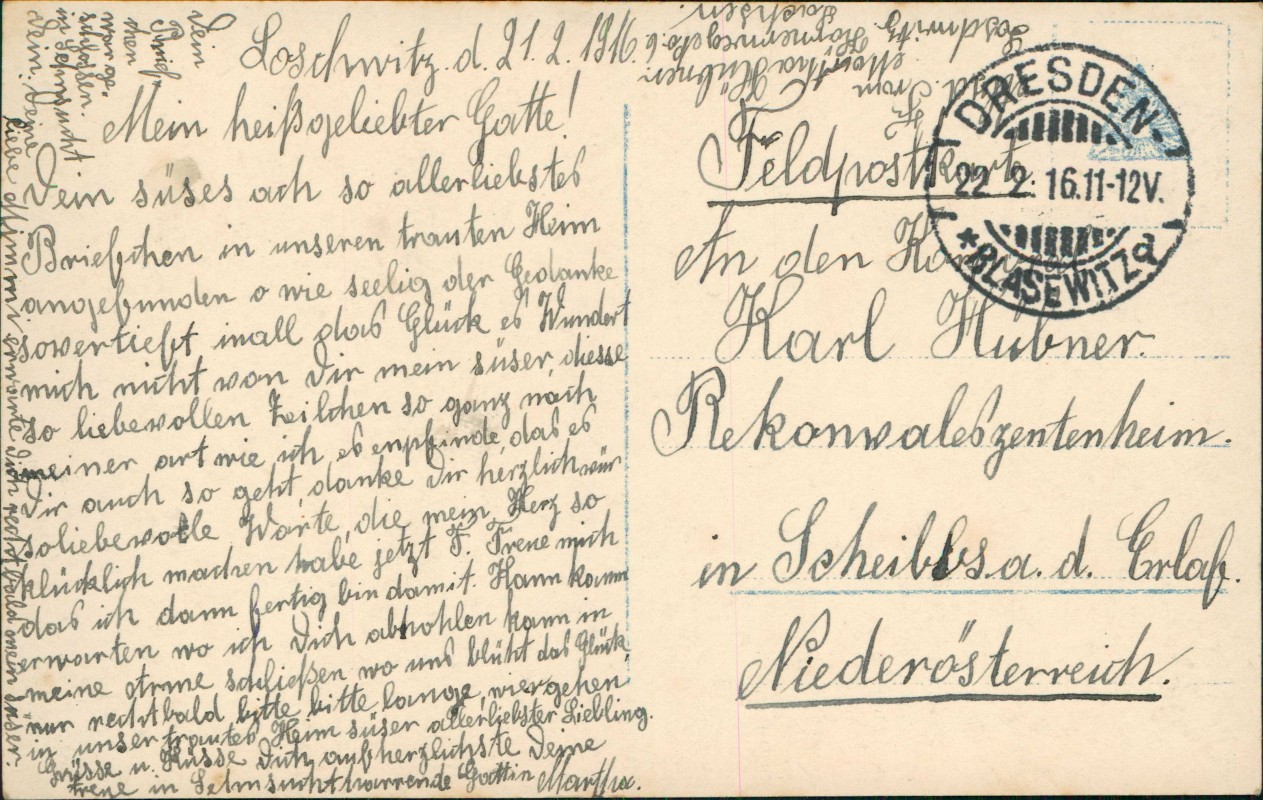 Loschwitz. d. 21. 2. 1916.
Mein heißgeliebter Gatte!
Dein süses ach so allerliebstes
Briefchen in unseren trauten Heim
angefunden o wie seelig der Gedanke
sovertieft inall das Glück es Wundert
mich nicht von Dir mein süser, diesse
so liebevollen Zeilchen so ganz nach
meiner art wie ich es enpfinde, das es
Dir auch so geht, danke Dir herzlich vür
soliebevolle Worte, die mein Herz so
klücklich machen habe jetzt F.
mich
das ich dann fertig bin damit. Kann kaum
erwarten wo ich Dich abhohlen kann in
meine Arme schließen wo uns blüht das Glück,
nur rechtbald bitte bitte lange, wiergehen
in unser trautes Heim süser allerliebster Liebling.
Grüsse u. Küsse Dich aufherzlichste Deine
treue in Sehnsucht harrende Gattin Martha.
Dein
Brief
chen
in Sehnsucht
Dein. Deine
liebe Mimmi erwarte Dich recht bald mein süser.
Frau
Martha Hübner
Loschwitz
Sachsen.
Feldpostkarte
An den
Karl Hübner.
Rekonvaleszentenheim.
in Scheibbs. a. d. Erlaf.
Niederösterreich.
DRESDEN-
22 2. 16.11-12V.
*BLASEWITZ d